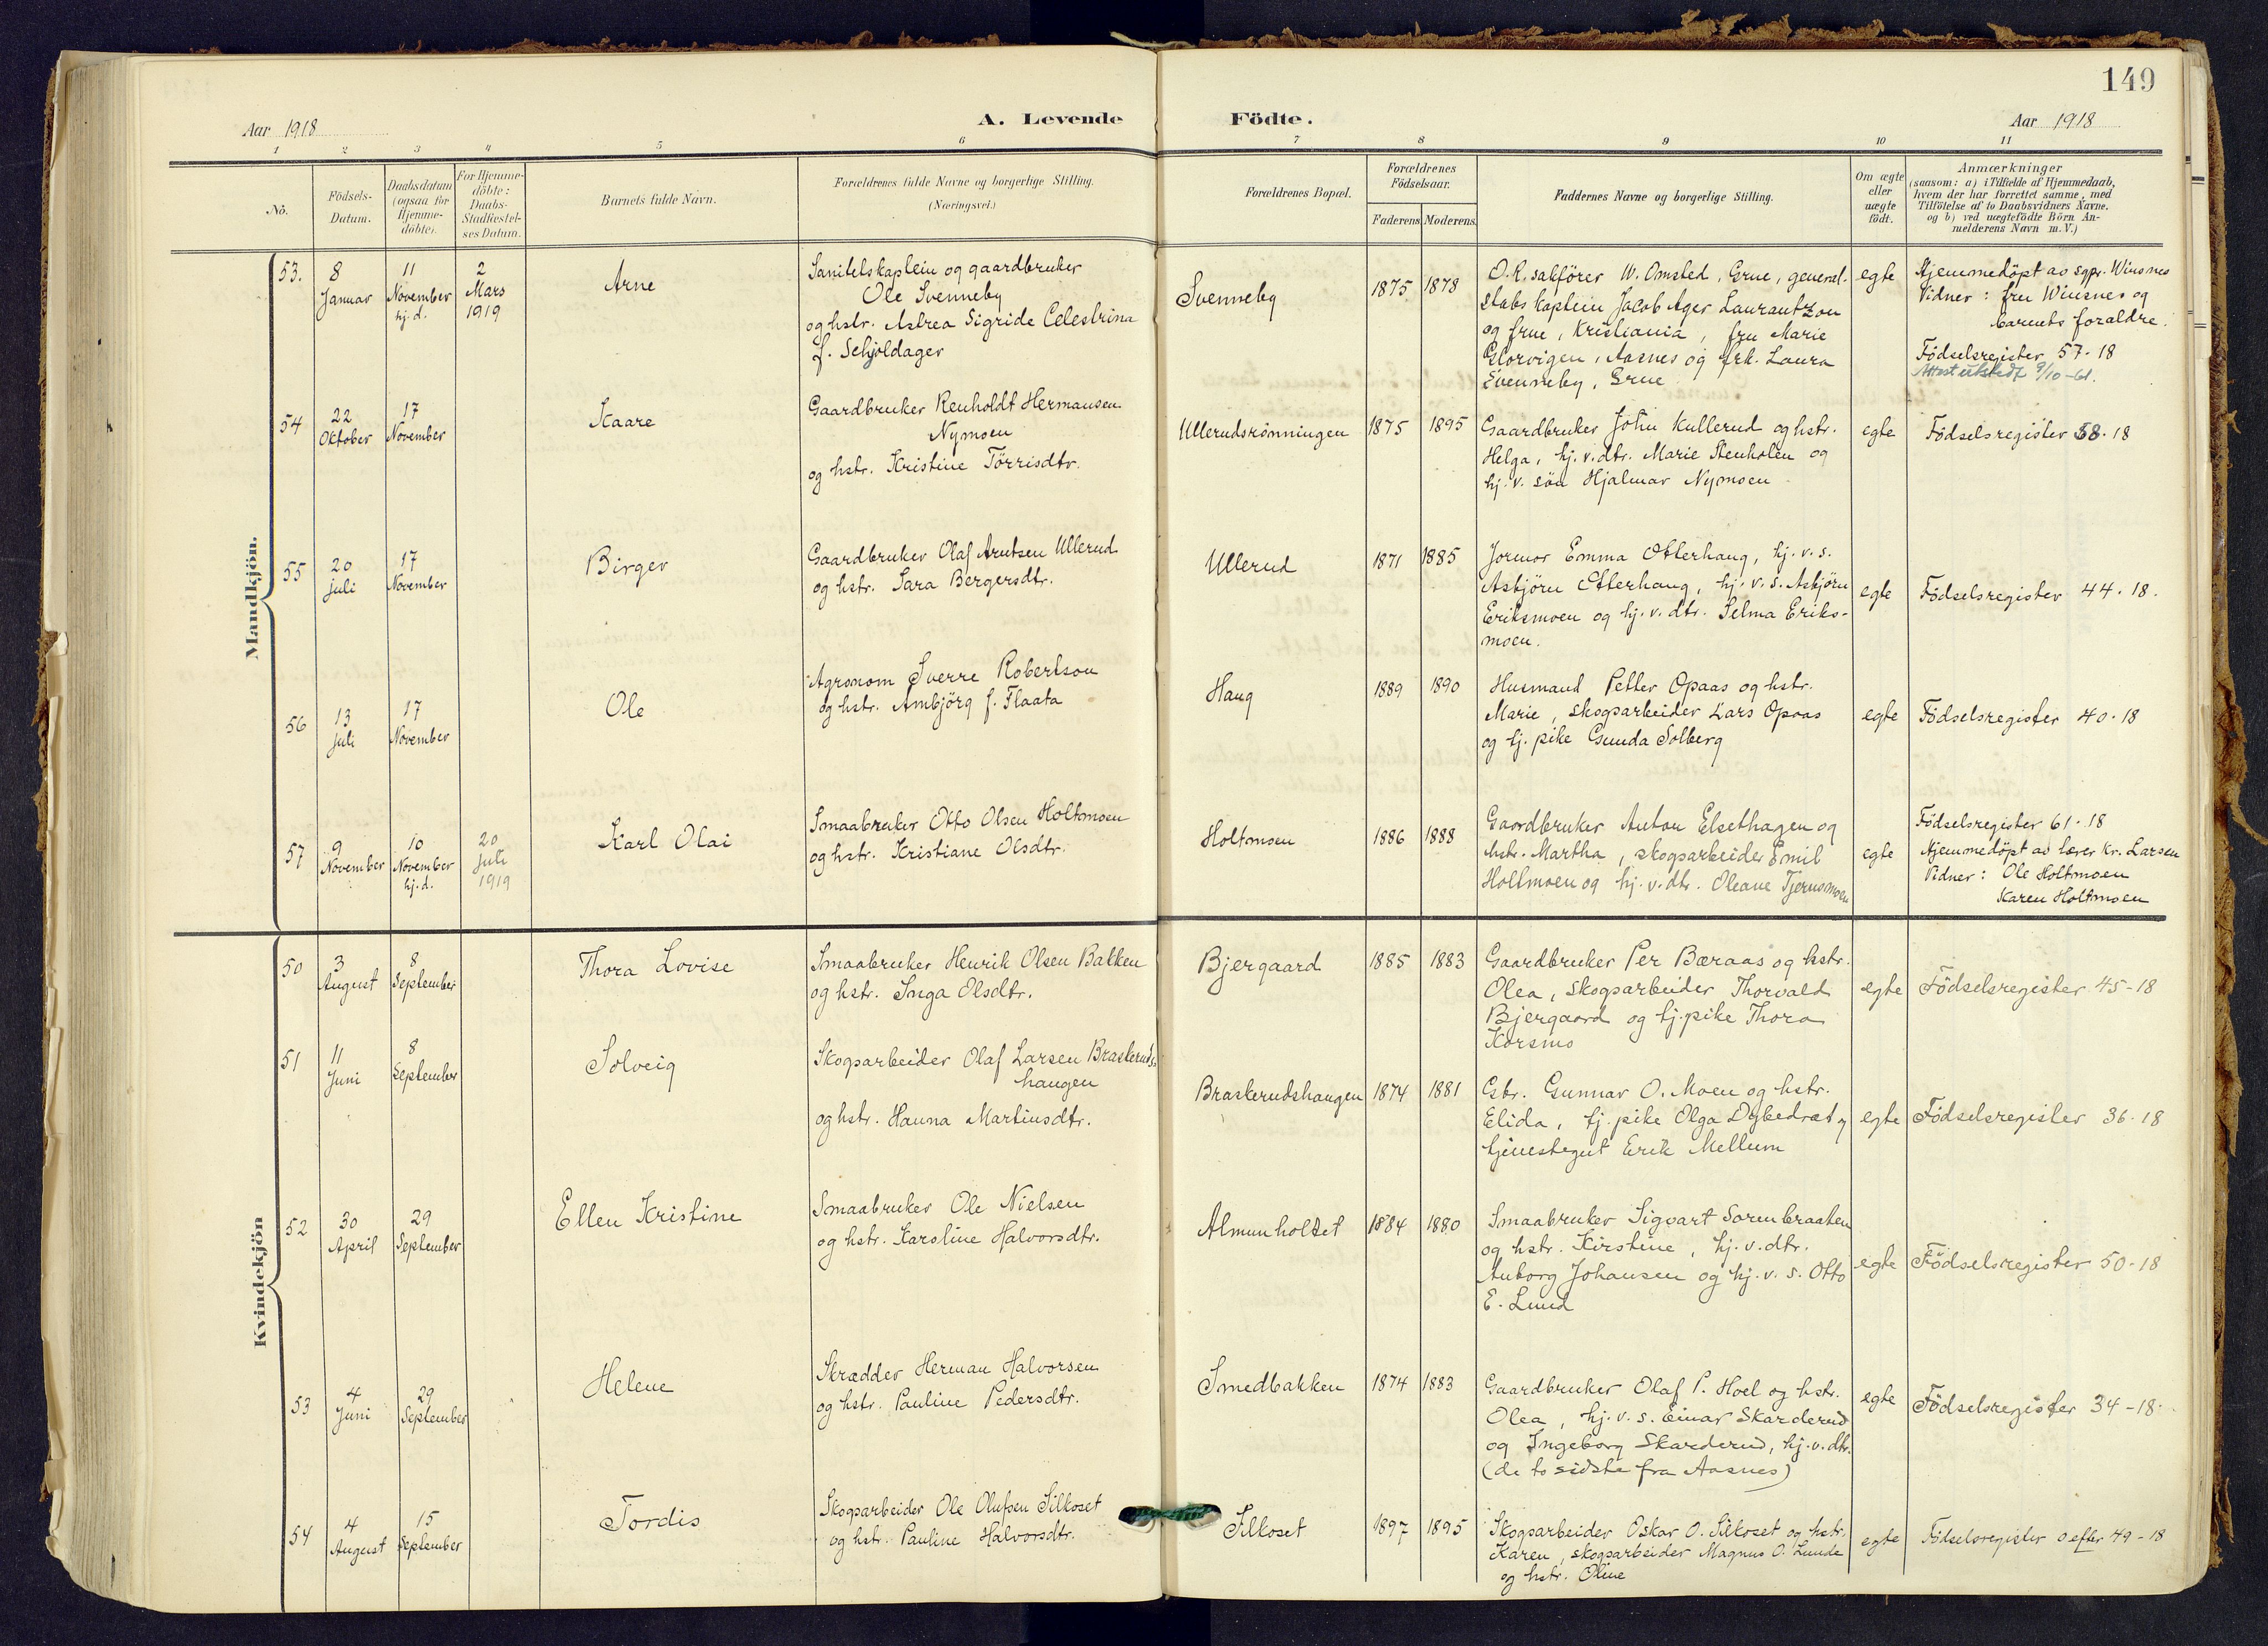 149
Aar 1918
A. Levende Födte.
Aar 1918
1 2 3 4 5 6 7 8 9 10 11
No.
Födsels-
Datum.
Daabsdatum
(ogsaa for
Hjemme-
döbte).
For Hjemme-
döbte:
Daabs-
Stadfæstel-
ses Datum.
Barnets fulde Navn.
Forældrenes fulde Navne og borgerlige Stilling.
(Næringsvei.)
Forældrenes Bopæl.
Forældrenes
Födselsaar.
Faderens. Moderens.
Faddernes Navne og borgerlige Stilling.
Om ægte
eller
uægte
födt.
Anmærkninger
(saasom: a) i Tilfælde af Hjemmedaab,
hvem der har forrettet samme, med
Tilföielse af to Daabsvidners Navne.
og b) ved uægtefödte Börn An-
melderens Navn m. V.)
Mandkjön.
53.
8
Januar
11
November
hj. d.
2
Mars
1919
Arne
Sanitetskaptein og gaardbruker
Ole Svenneby
og hstr. Astrea Sigride Celestrina
f. Schjoldager
Svenneby
1875 1878
O.R. sakförer W. Omsted, Grue, general-
stabs kaptein Jacob Ager Laurantzon
og frue, Kristiania, fru Marie
Glorvigen, Aasnes og frk. Laura
Svenneby, Grue
egte
Hjemmedöpt av sgpr. Winsnes
Vidner: fru Winsnes og
barnets foraldre.
Födselsregister 57-18
Attest utstedt 9/10-61.
54
22
Oktober
17
November
Kaare
Gaardbruker Renholdt Hermansen
Nymoen
og hstr. Kristine Törrisdtr.
Ullerudsrönningen
1875 1895
Gaardbruker John Kullerud og hstr.
Helga, hj. v. dtr. Marie Stenholen og
hj. v. sön Hjalmar Nymoen
egte
Födselsregister 58-18
55
20
juli
17
November
Birger
Gaardbruker Olaf Arntsen Ullerud
og hstr. Sara Bergersdtr.
Ullerud
1871 1885
Jormor Emma Otterhaug, hj. v. s.
Asbjörn Otterhaug, hj. v. s. Asbjörn
Eriksmoen og hj. v. dtr. Selma Eriks-
moen.
egte
Födselsregister 44-18.
56
13
juli
17
November
Ole
Agronom Sverre Robertson
og hstr. Ambjörg f. Flaata
Haug
1889 1890
Husmand Petter Opaas og hstr.
Marie, skogsarbeider Lars Opaas
og tj. pike Gunda Solberg
egte
Födselsregister 40-18
57
9
November
10
November
hj. d.
20
Juli
1919
Karl Olai
Smaabruker Otto Olsen Holtmoen
og hstr. Kristiane Olsdtr.
Holtmoen
1886 1888
Gaardbruker Anton Elsethagen og
hstr. Martha, skogsarbeider Emil
Holtmoen og hj. v. dtr. Oleane Tjernsmoen
egte
Födselsregister 61-18
Hjemmedöpt av lærer Kr. Larsen
Vidner: Ole Holtmoen
Karen Holtmoen
Kvindekjön
50
3
August
8
September
Thora Lovise
Smaabruker Henrik Olsen Bakken
og hstr. Inga Olsdtr.
Bjergaard
1885 1883
Gaardbruker Per Bæraas og hstr.
Olea, skogsarbeider Thorvald
Bjergaard og tj. pike Thora
Korsmo
egte
Födselsregister 45-18
51
11
Juni
8
September
Solveig
Skogsarbeider Olaf Larsen Braskeruds-
haugen
og hstr. Hanna Martinsdtr.
Braskerudshaugen
1874 1881
Gbr. Gunnar O. Moen og hstr.
Elida, tj. pike Olga Dybedræt og
tjenestegut Erik Mellum
egte
Födselsregister 36-18
52
30
April
29
September
Ellen Kristine
Smaabruker Ole Nielsen
og hstr. Karoline Halvorsdtr.
Almunholtet
1884 1880
Smaabruker Sigvart Sorenbraaten
og hstr. Kirstine, hj. v. dtr.
Anborg Johansen og hj. v. s. Otto
E. Lund
egte
Födselsregister 50-18
53
4
Juni
29
September
Helene
Skrædder Herman Halvorsen
og hstr. Pauline Pedersdtr.
Smedbakken
1874 1883
Gaardbruker Olaf P. Hoel og hstr.
Olea, hj. v. s. Einar Skarderud
og Ingeborg Skarderud, hj. v. dtr.
(de to sidste fra Aasnes)
egte
Födselsregister 34-18.
54
4
August
15
September
Tordis
Skogsarbeider Ole Olufsen Silkoset
og hstr. Pauline Halvorsdtr.
Silkoset
1897 1895
Skogsarbeider Oskar O. Silkoset og hstr.
Karen, skogsarbeider Magnus O. Lunde
og hstr. Oline
egte
Födselsregister 0 efter 49-18